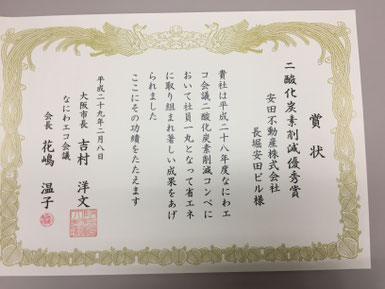 賞状
二酸化炭素削減優秀賞
安田不動産株式会社
長堀安田ビル様
貴社は平成二十八年度なにわエ
コ会議二酸化炭素削減コンペに
おいて社員一丸となって省エネ
に取り組まれ著しい成果をあげ
られました
ここにその功績をたたえます
平成二十九年二月八日
大阪市長 吉村洋文
なにわエコ会議
会長 花嶋温子